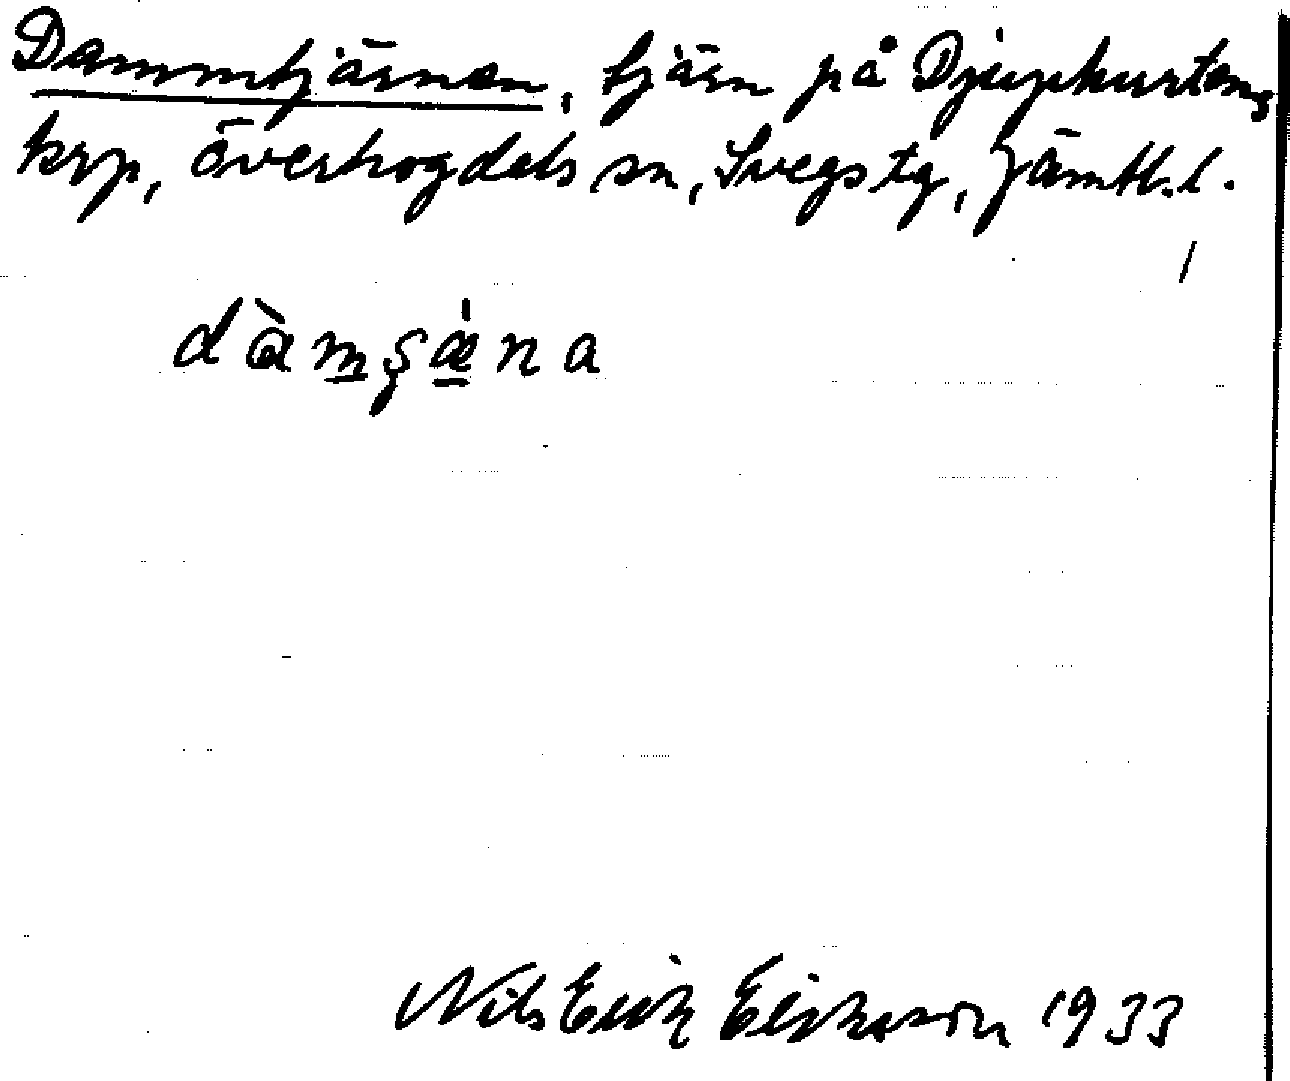 Dammtjärnen, tjärn på Djupkurtens
krp, överhogdals sn, Svegs tg, Jämtl. l.
dàmʂæ̀na
Nils Erik Eriksson 1933